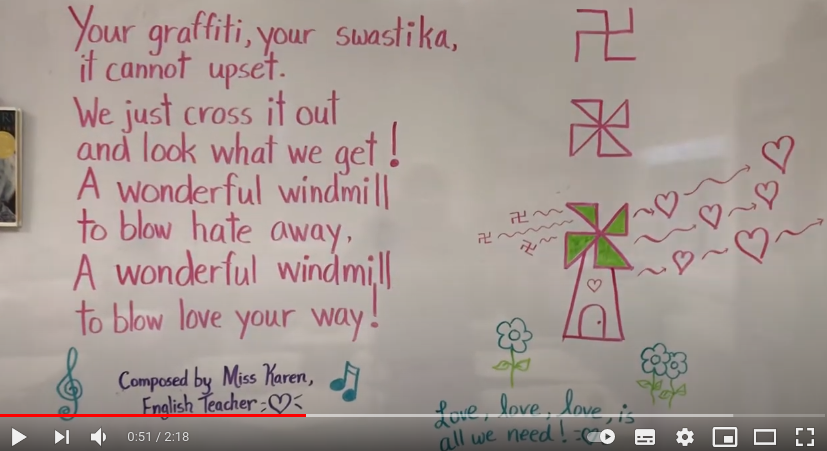 Your graffiti, your swastika,
it cannot upset.
We just cross it out
and look what we get!
A wonderful windmill
to blow hate away,
A wonderful windmill
to blow love your way!
Composed by Miss Karen,
English Teacher
Love, love, love, is
all we need!
0:51 / 2:18